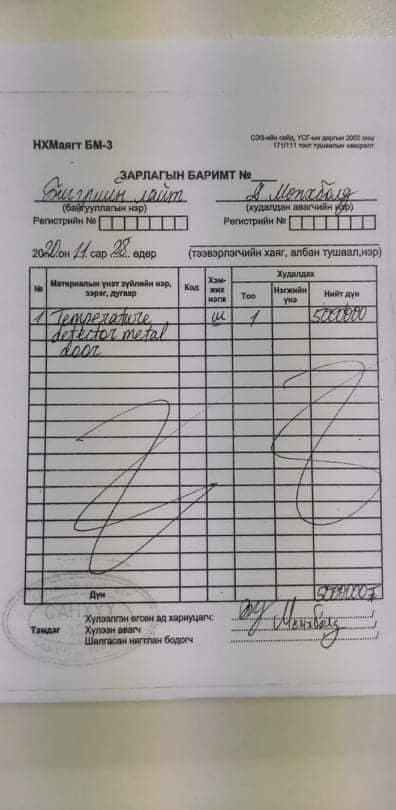 НХМаягт БМ-3
СЭЗ-ийн сайд, ҮСГ-ын даргын 2002 оны
171/111 тоот тушаалын хавсралт
ЗАРЛАГЫН БАРИМТ №
лайт
Д Мөнхболд
(байгууллагын нэр)
(худалдан авагчийн нэр)
Регистрийн №
Регистрийн №
2020 он 11 сар 28 өдөр
(тээвэрлэгчийн хаяг, албан тушаал, нэр)
№
Материалын үнэт зүйлийн нэр, зэрэг, дугаар
Код
Хэмжих нэгж
Худалдах
Тоо
Нэгжийн үнэ
Нийт дүн
1 Temperature ш 1 5000000
detector metal
door
Дүн
Тэмдэг
Хүлээлгэн өгсөн эд хариуцагч:
Хүлээн авагч Мөнхболд
Шалгасан нягтлан бодогч